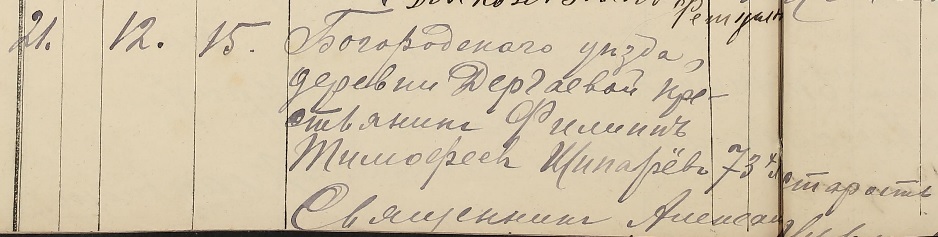 21. 12. 15. Богородскаго уѣзда,
деревни Дергаевой кре-
стьянинъ Филиппъ
Тимофеевъ Шипарёвъ 73 старость
Священникъ